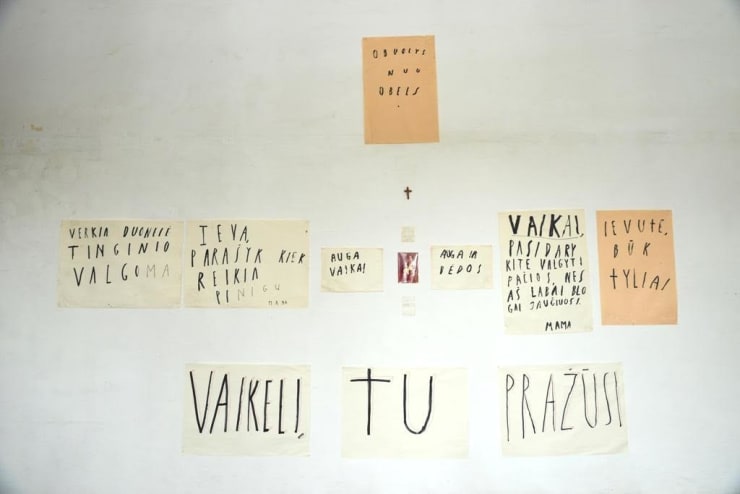 OBUOLYS
NUO
OBELS
.
VERKIA DUONELĖ
TINGINIO
VALGOMA
IEVA,
PARAŠYK KIEK
REIKIA
PINIGŲ
AUGA
VAIKAI
AUGA IR
BĖDOS
VAIKAI,
PASIDARY
KITE VALGYTI
PAČIOS, NES
AŠ LABAI BLO
GAI JAUČIUOSI.
MAMA
IEVUTE,
BŪK
TYLIAI
VAIKELI,
TU
PRAŽŪSI